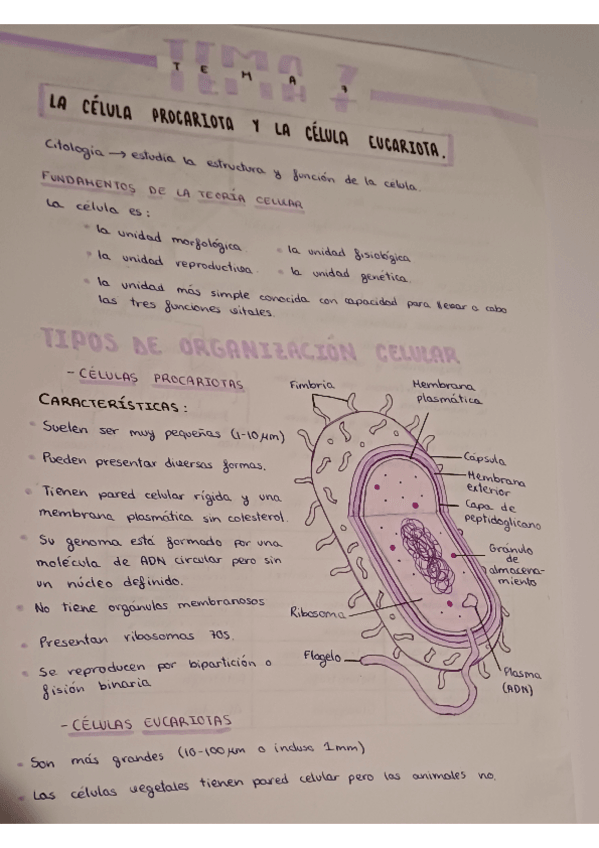 TEMA 7
LA CÉLULA PROCARIOTA Y LA CÉLULA EUCARIOTA.
Citología → estudia la estructura y función de la célula.
FUNDAMENTOS DE LA TEORÍA CELULAR
La célula es:
• la unidad morfológica • la unidad fisiológica
• la unidad reproductiva • la unidad genética.
• la unidad más simple conocida con capacidad para llevar a cabo
las tres funciones vitales.
TIPOS DE ORGANIZACIÓN CELULAR
- CÉLULAS PROCARIOTAS
CARACTERÍSTICAS:
• Suelen ser muy pequeñas (1-10 µm)
• Pueden presentar diversas formas.
• Tienen pared celular rígida y una
membrana plasmática sin colesterol.
• Su genoma está formado por una
molécula de ADN circular pero sin
un núcleo definido.
• No tiene orgánulos membranosos
• Presentan ribosomas 70s.
• Se reproducen por bipartición o
fisión binaria
Fimbria
Membrana
plasmática
Cápsula
Membrana
exterior
Capa de
peptidoglicano
Gránulo
de
almacena-
miento
Ribosoma
Flagelo
Plasma
(ADN)
- CÉLULAS EUCARIOTAS
• Son más grandes (10-100 µm o incluso 1mm)
• Las células vegetales tienen pared celular pero las animales no.